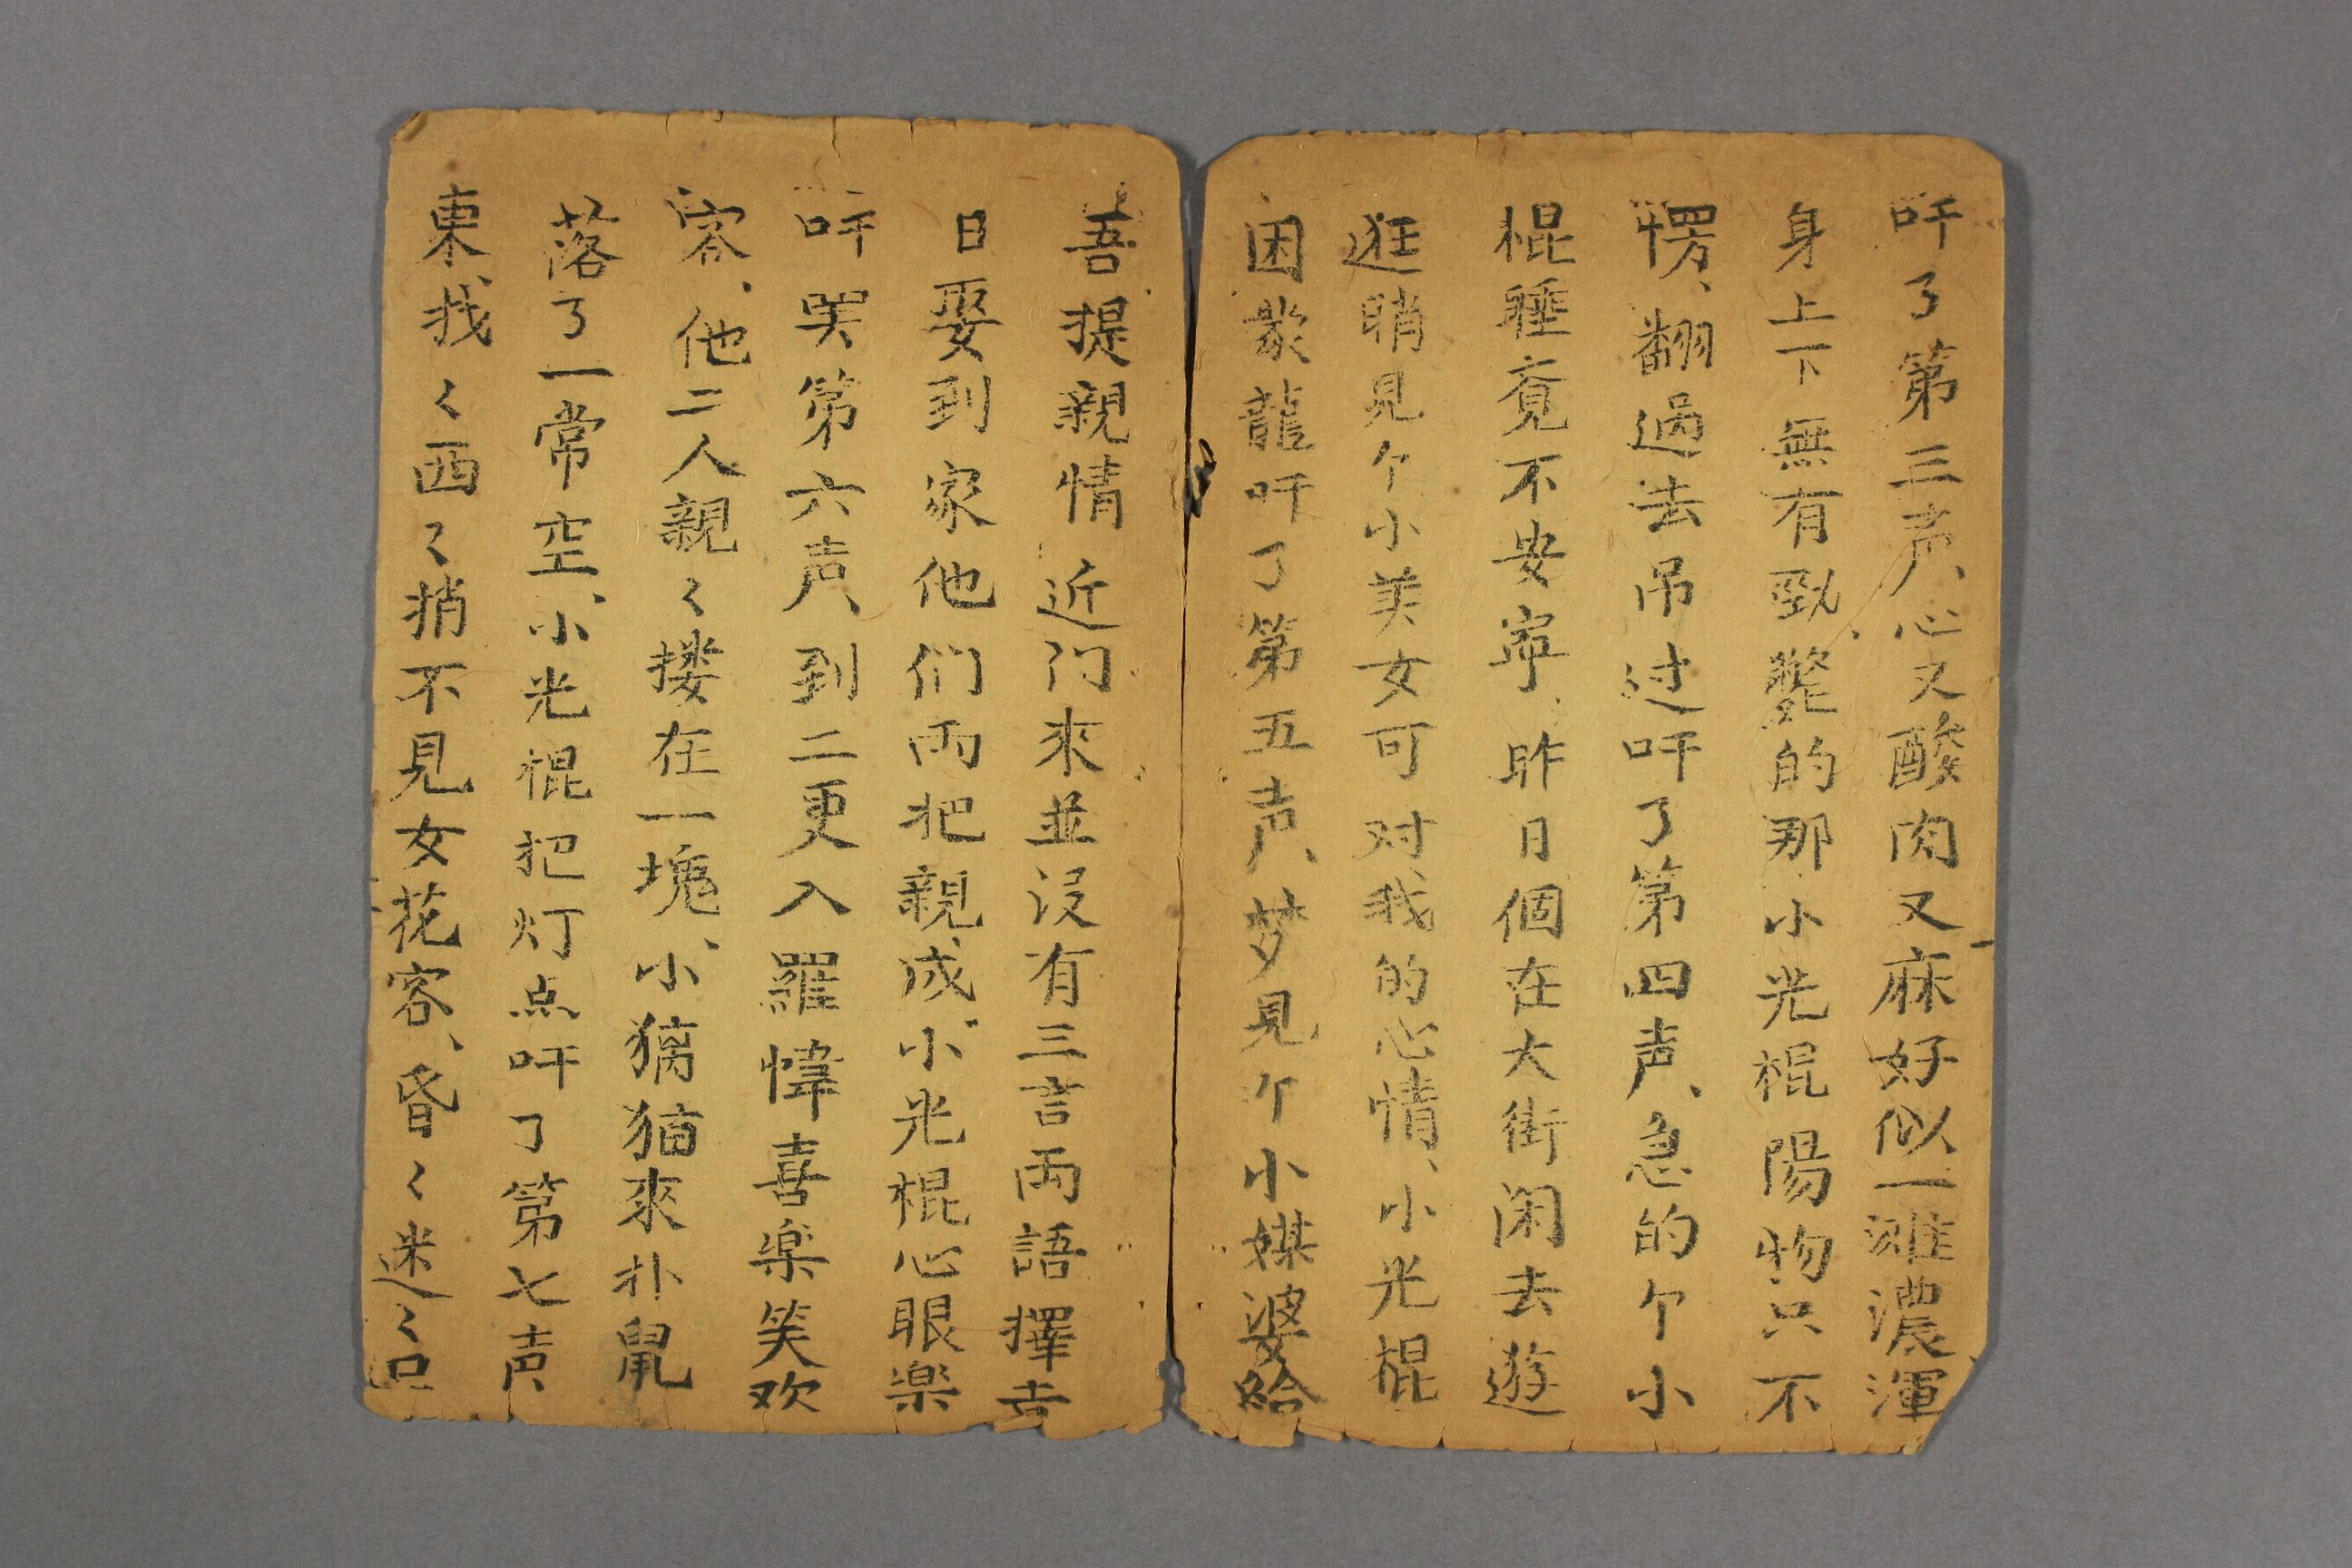 吁了第三声、心又酸肉又麻好似一滩濃渾
身上下無有勁、斃的那小光棍陽物只不
愣、翻過去吊过吁了第四声、急的个小
棍睡竟不安寧、昨日個在大街闲去遊
逛睄見个小美女可对我的心情、小光棍
困朦龍吁了第五声、梦見个小媒婆給
吾提親情近门來並没有三言両語擇吉
日娶到家他们両把親成、小光棍心眼楽
吁哭第六声、到二更入羅幃喜楽笑欢
容、他二人親〻搂在一塊、小猫猫來扑鼠
落了一常空、小光棍把灯点吁了第七声
東、找〻西〻捎不見女花容、昏〻迷〻只